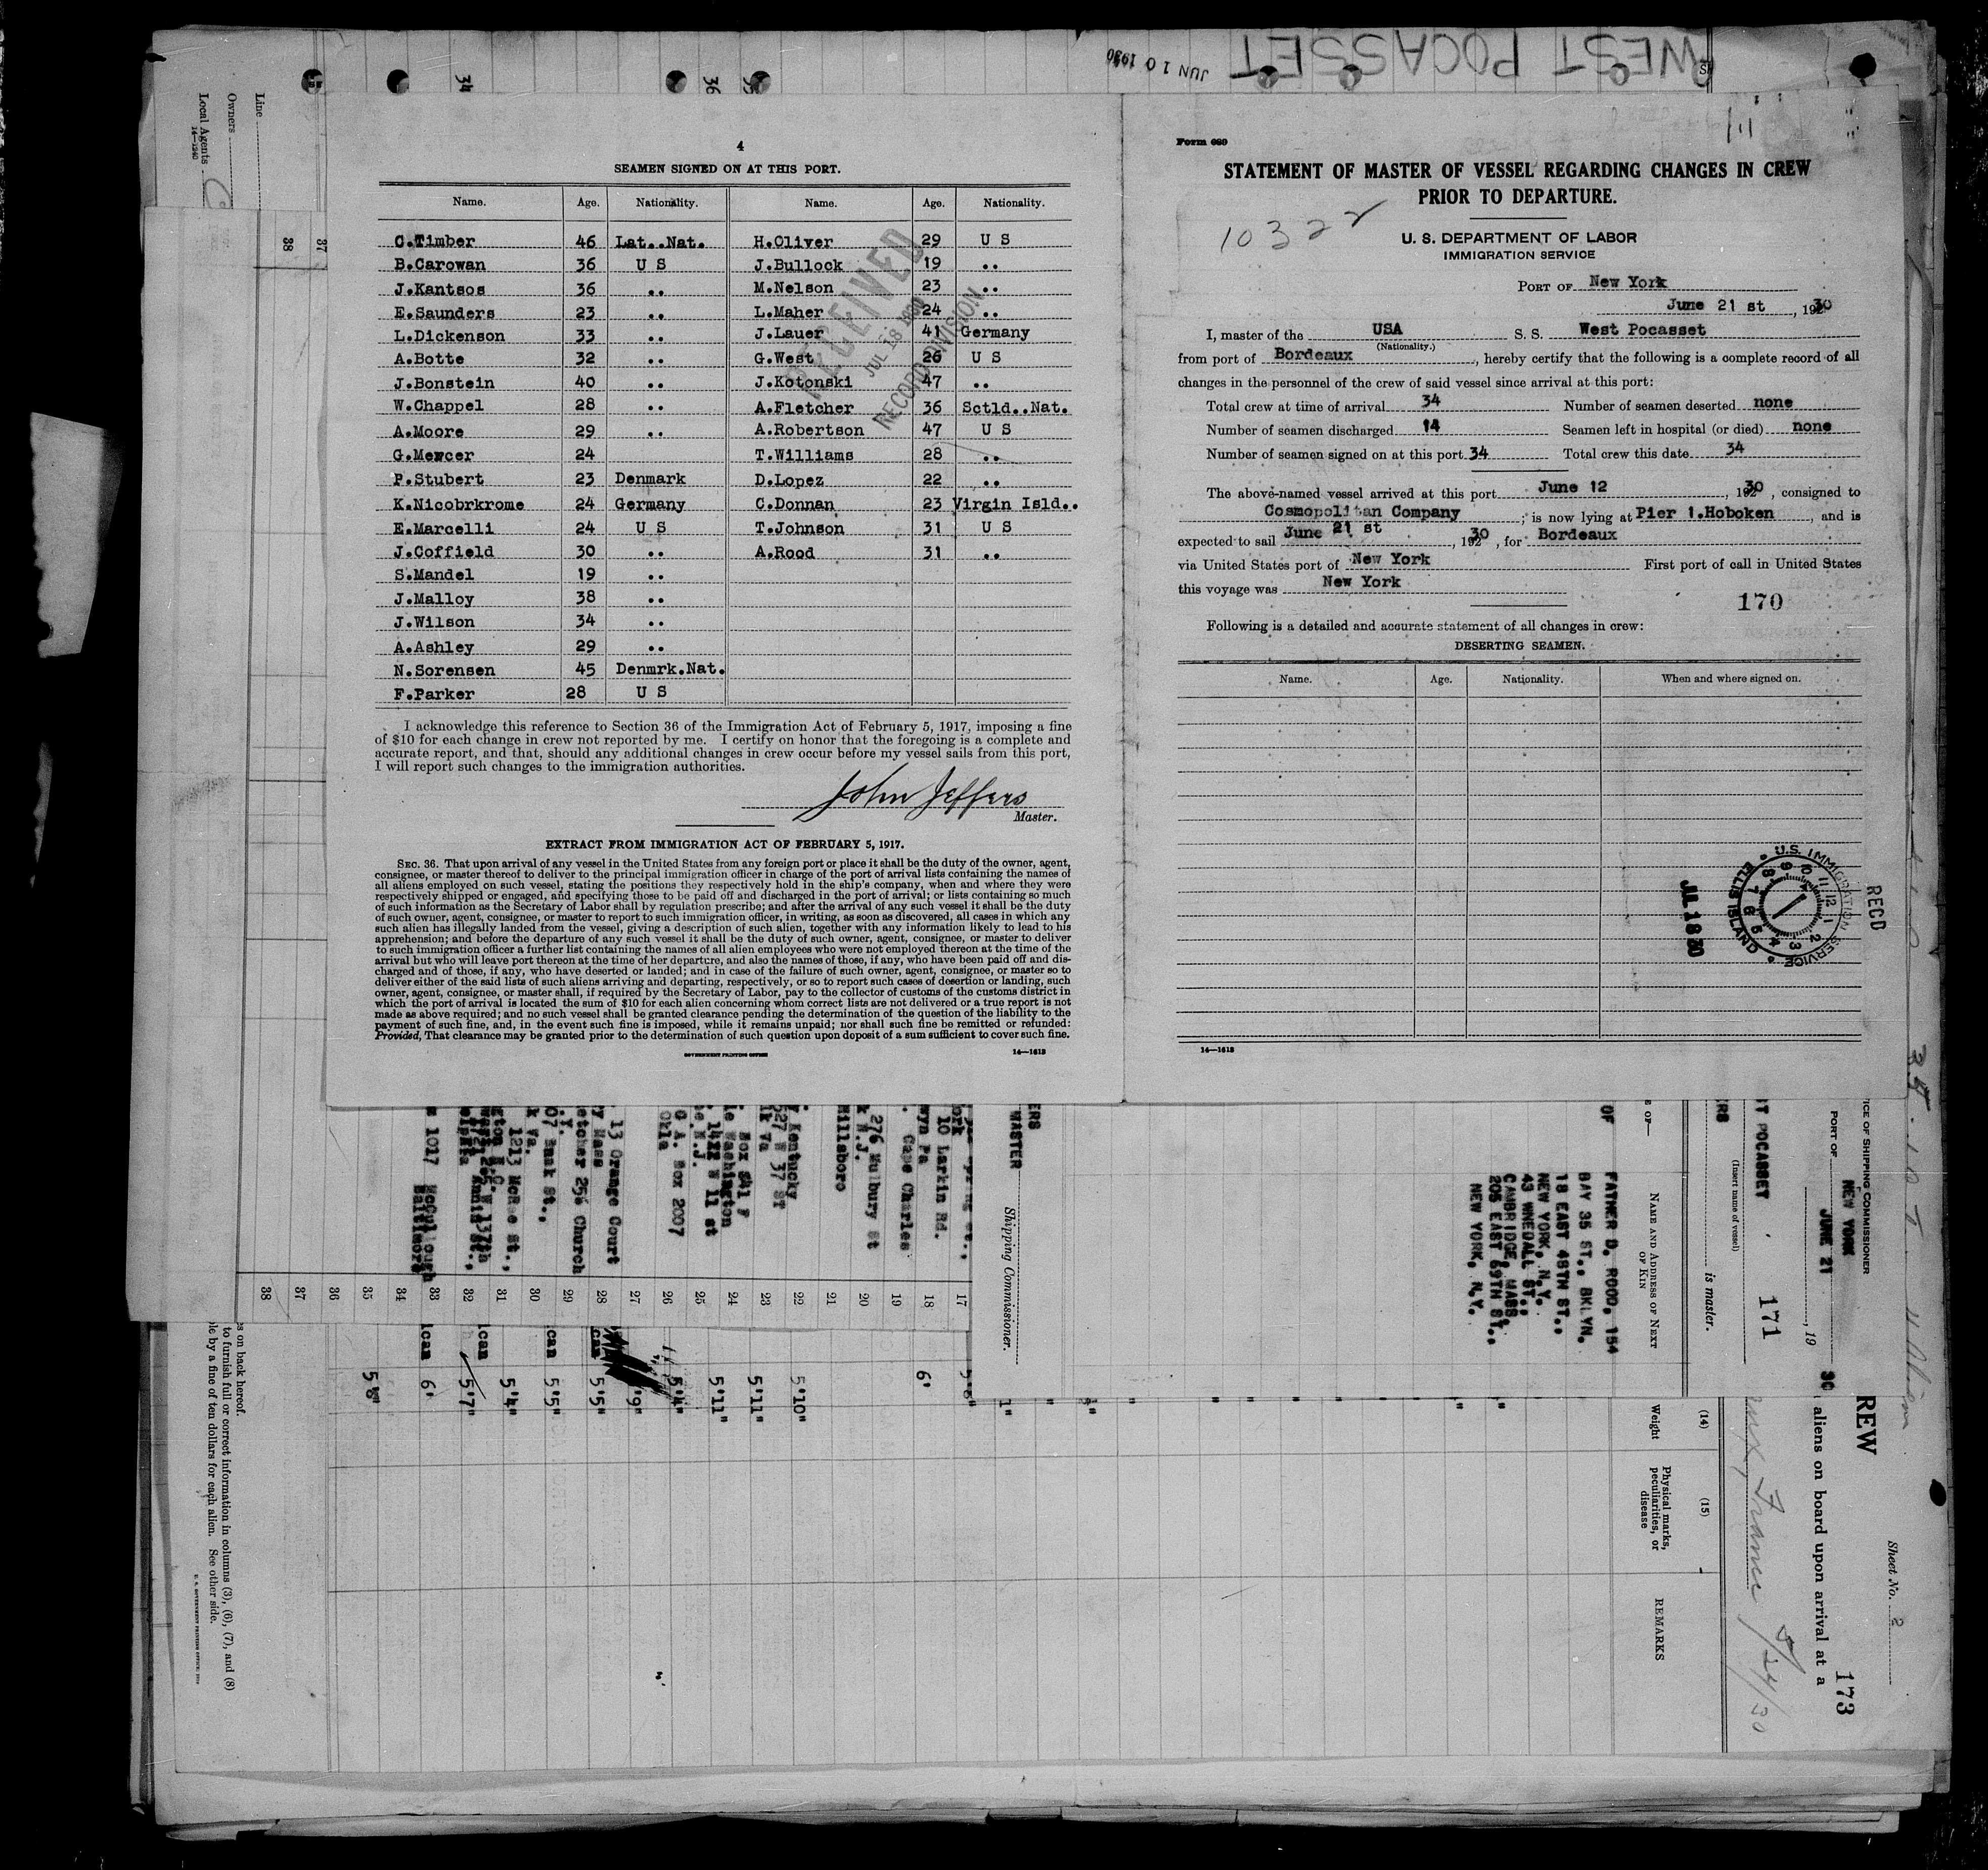 WEST POCASSET
JUN 10 1930
34
36
Line
Owners
Local Agents
14—1240
38
37
4
SEAMEN SIGNED ON AT THIS PORT.
Name. Age. Nationality. Name. Age. Nationality.
C.Timber 46 Lat..Nat. H.Oliver 29 U S
B.Carowan 36 U S J.Bullock 19 ..
J.Kantsos 36 .. M.Nelson 23 ..
E.Saunders 23 .. L.Maher 24 ..
L.Dickenson 33 .. J.Lauer 41 Germany
A.Botte 32 .. G.West 26 U S
J.Bonstein 40 .. J.Kotonski 47 ..
W.Chappel 28 .. A.Fletcher 36 Sctld..Nat.
A.Moore 29 .. A.Robertson 47 U S
G.Mercer 24 T.Williams 28 ..
P.Stubert 23 Denmark D.Lopez 22 ..
K.Nicobrkrome 24 Germany C.Donnan 23 Virgin Isld..
E.Marcelli 24 U S T.Johnson 31 U S
J.Coffield 30 .. A.Rood 31 ..
S.Mandel 19 ..
J.Malloy 38 ..
J.Wilson 34 ..
A.Ashley 29 ..
N.Sorensen 45 Denmrk.Nat.
F.Parker 28 U S
RECEIVED
JUL 18 1930
RECORD DIVISION
I acknowledge this reference to Section 36 of the Immigration Act of February 5, 1917, imposing a fine
of $10 for each change in crew not reported by me. I certify on honor that the foregoing is a complete and
accurate report, and that, should any additional changes in crew occur before my vessel sails from this port,
I will report such changes to the immigration authorities.
John Jeffers
Master.
EXTRACT FROM IMMIGRATION ACT OF FEBRUARY 5, 1917.
SEC. 36. That upon arrival of any vessel in the United States from any foreign port or place it shall be the duty of the owner, agent,
consignee, or master thereof to deliver to the principal immigration officer in charge of the port of arrival lists containing the names of
all aliens employed on such vessel, stating the positions they respectively hold in the ship's company, when and where they were
respectively shipped or engaged, and specifying those to be paid off and discharged in the port of arrival; or lists containing so much
of such information as the Secretary of Labor shall by regulation prescribe; and after the arrival of any such vessel it shall be the duty
of such owner, agent, consignee, or master to report to such immigration officer, in writing, as soon as discovered, all cases in which any
such alien has illegally landed from the vessel, giving a description of such alien, together with any information likely to lead to his
apprehension; and before the departure of any such vessel it shall be the duty of such owner, agent, consignee, or master to deliver
to such immigration officer a further list containing the names of all alien employees who were not employed thereon at the time of the
arrival but who will leave port thereon at the time of her departure, and also the names of those, if any, who have been paid off and dis-
charged and of those, if any, who have deserted or landed; and in case of the failure of such owner, agent, consignee, or master so to
deliver either of the said lists of such aliens arriving and departing, respectively, or so to report such cases of desertion or landing, such
owner, agent, consignee, or master shall, if required by the Secretary of Labor, pay to the collector of customs of the customs district in
which the port of arrival is located the sum of $10 for each alien concerning whom correct lists are not delivered or a true report is not
made as above required; and no such vessel shall be granted clearance pending the determination of the question of the liability to the
payment of such fine, and, in the event such fine is imposed, while it remains unpaid; nor shall such fine be remitted or refunded:
Provided, That clearance may be granted prior to the determination of such question upon deposit of a sum sufficient to cover such fine.
GOVERNMENT PRINTING OFFICE 14—1613
Form 689
STATEMENT OF MASTER OF VESSEL REGARDING CHANGES IN CREW
PRIOR TO DEPARTURE.
10322
U. S. DEPARTMENT OF LABOR
IMMIGRATION SERVICE
PORT OF New York
June 21 st, 1930
I, master of the USA S. S. West Pocasset
(Nationality.)
from port of Bordeaux, hereby certify that the following is a complete record of all
changes in the personnel of the crew of said vessel since arrival at this port:
Total crew at time of arrival 34 Number of seamen deserted none
Number of seamen discharged 14 Seamen left in hospital (or died) none
Number of seamen signed on at this port 34 Total crew this date 34
The above-named vessel arrived at this port June 12, 1930, consigned to
Cosmopolitan Company; is now lying at Pier 1.Hoboken, and is
expected to sail June 21 st, 1930, for Bordeaux
via United States port of New York First port of call in United States
this voyage was New York
170
Following is a detailed and accurate statement of all changes in crew:
DESERTING SEAMEN.
Name. Age. Nationality. When and where signed on.
REC'D
U.S. IMMIGRATION SERVICE
ELLIS ISLAND
JUL 18 30
14—1613
ICE OF SHIPPING COMMISSIONER
PORT OF NEW YORK
JUNE 21, 19 30
T POCASSET 171
(Insert name of vessel)
is master.
NAME AND ADDRESS OF NEXT
OF KIN
FATHER D. ROOD, 154
BAY 35 ST., BKLYN.
18 EAST 48TH ST.,
NEW YORK, N.Y.
43 WNEDALL ST.,
CAMBRIDGE, MASS.
205 EAST 69TH ST.,
NEW YORK, N.Y.
MASTER
Shipping Commissioner.
10 Larkin Rd.
Cape Charles
276 Mulbury St
N.J.
Hillsboro
Kentucky
527 W 37 ST
Box 841 F
Washington
1422 W 11 st
G A. Box 2007
Okla
13 Orange Court
Mass
etcher 256 Church
07 Bank St.,
1213 McRae St.,
1017 McCullough
Baltimore
17 18 19 20 21 22 23 24 25 26 27 28 29 30 31 32 33 34 35 36 37 38
6'
5'10"
5'11"
5'11"
5'4"
5'5"
5'5"
5'4"
5'7"
6'
5'8"
REW
Sheet No. 2
173
aliens on board upon arrival at a
(14)
Weight
(15)
Physical marks,
peculiarities, or
disease
REMARKS
s on back hereof.
to furnish full or correct information in columns (3), (6), (7), and (8)
le by a fine of ten dollars for each alien. See other side.